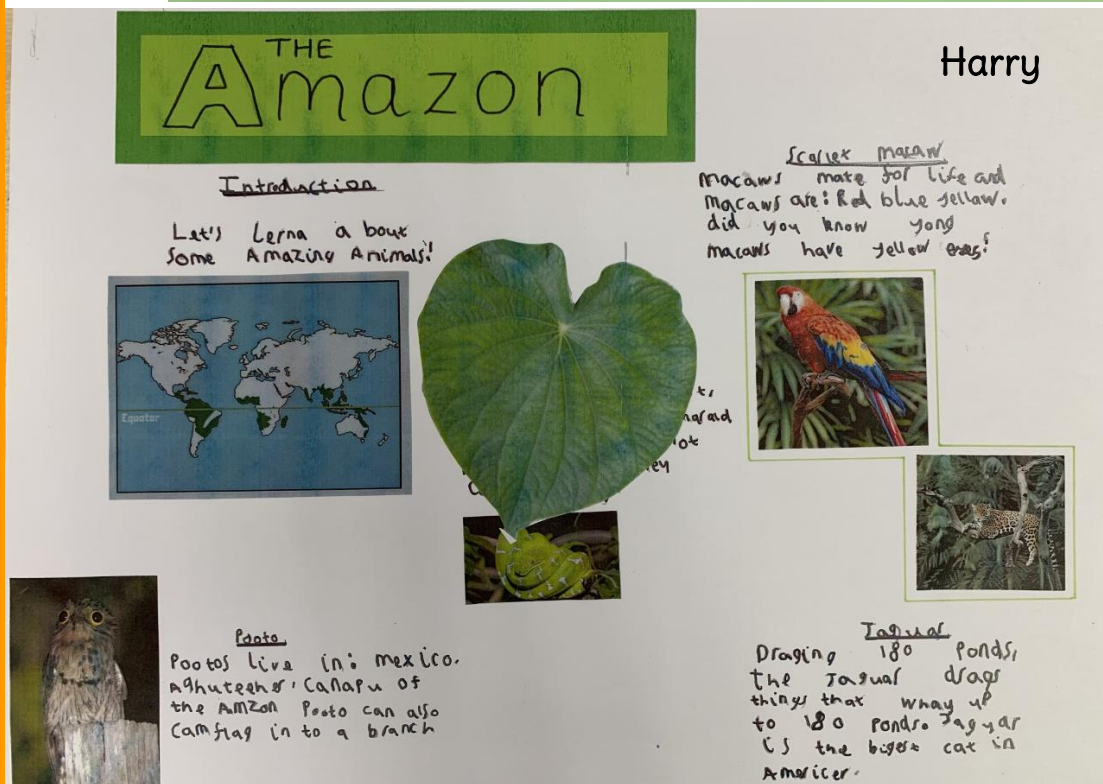 THE
Amazon
Harry
Introduction
Let's Lerna a bout
some Amazing Animals!
Equator
Scarlet macaw
macaws mate for life and
macaws are: Red blue yellow.
did you know yong
macaws have yellow eyes!
ot
ey
Pooto
Pootos live in: mexico.
the AMZon Pooto can also
Camflag in to a branch
Jaguar
Draging 180 Ponds,
the Jaguar drags
things that whay up
to 180 ponds. Jaguar
is the bigest cat in
Americer.